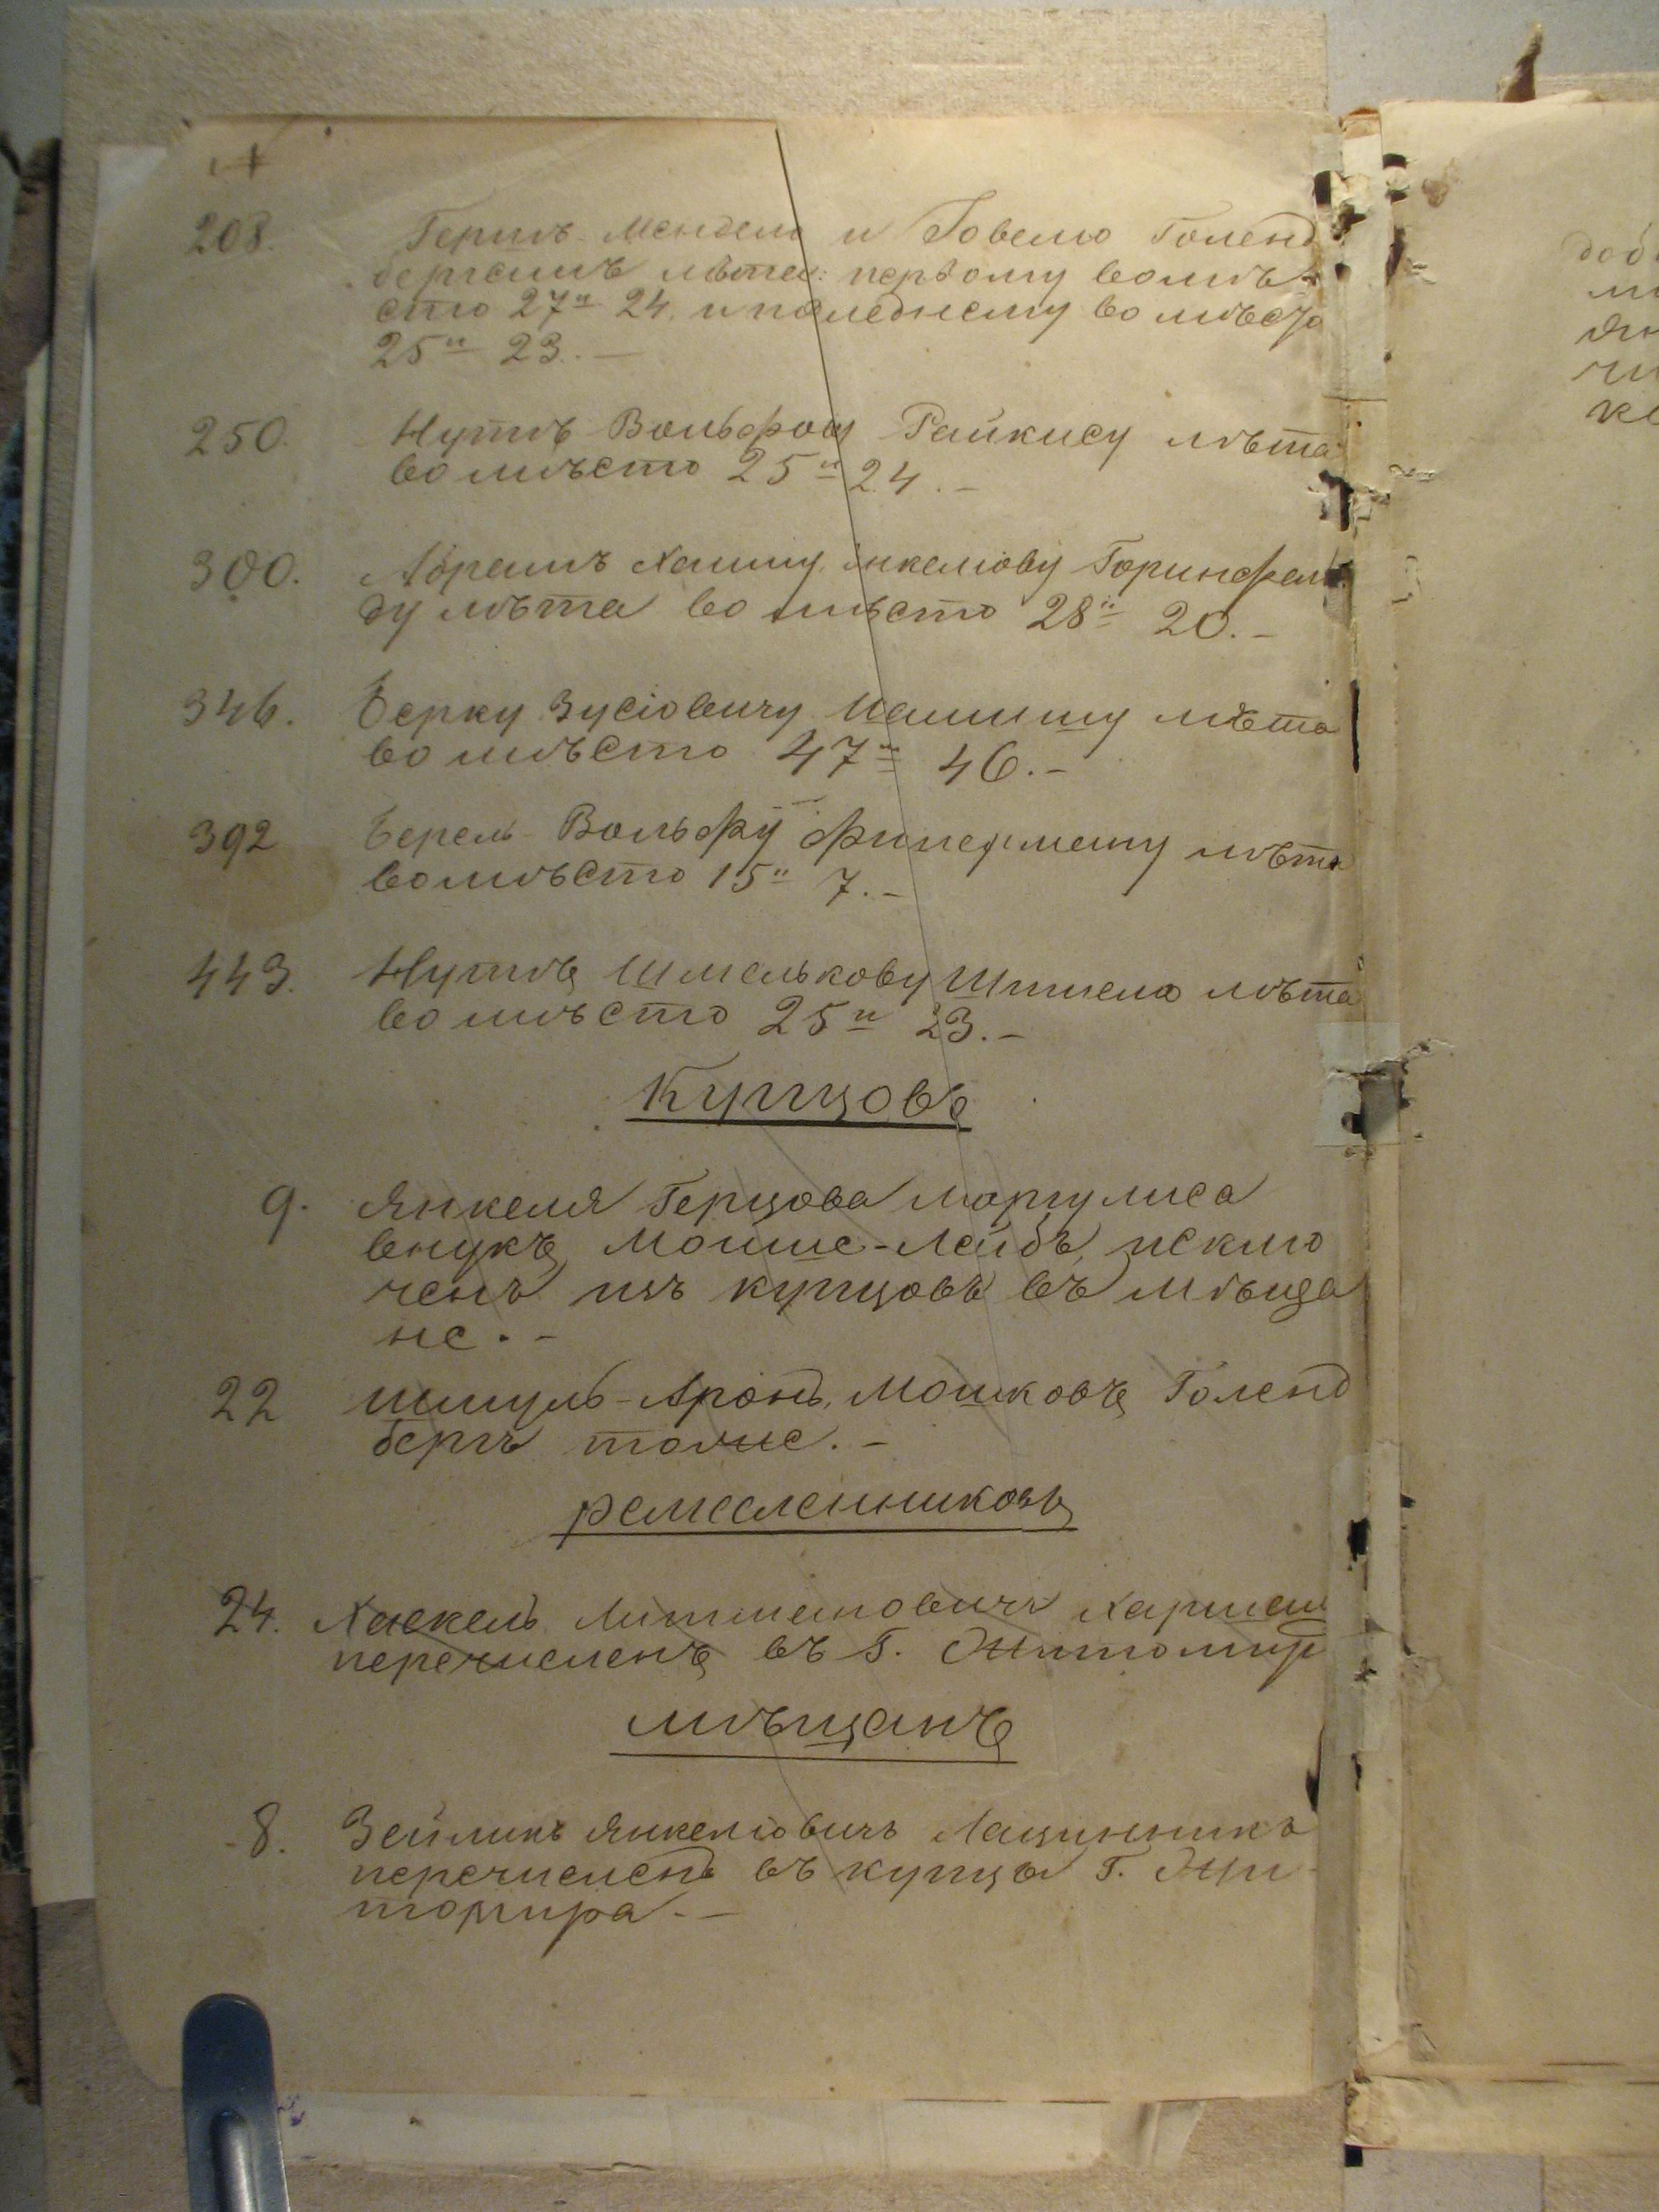 208. Гершъ Мендель и Говелю Голенд
бергамъ лѣта: первому вомѣ
сто 27и 24, и последнему вомѣсто
25и 23.—
250. Нутѣ Вольфову Райкису лѣта
вомѣсто 25и 24.—
300. Абрамъ Хаиму Янкеліову Горинфель
ду лѣта вомѣсто 28и 20.—
346. Берку Зусіовичу лѣта
вомѣсто 47и 46.—
392 Берель-Вольфу лѣта
вомѣсто 15и 7.—
443. Нутѣ Шмелькову лѣта
вомѣсто 25и 23.—
Купцовъ
9. Янкеля Герцова Маргулиса
внукъ Мошше-Лейбъ, исклю
ченъ изъ купцовъ въ мѣща
не.—
22 Шмуль-Аронъ Мошковъ Голенд
бергъ тоже.—
ремесленниковъ
24. Хаскель Литмановичъ
перечисленъ въ г. Житомир
мѣщанъ
8. Зейликъ Янкеліовичъ Лащинникъ
перечисленъ въ купцы г. Жи
томира.—
доб